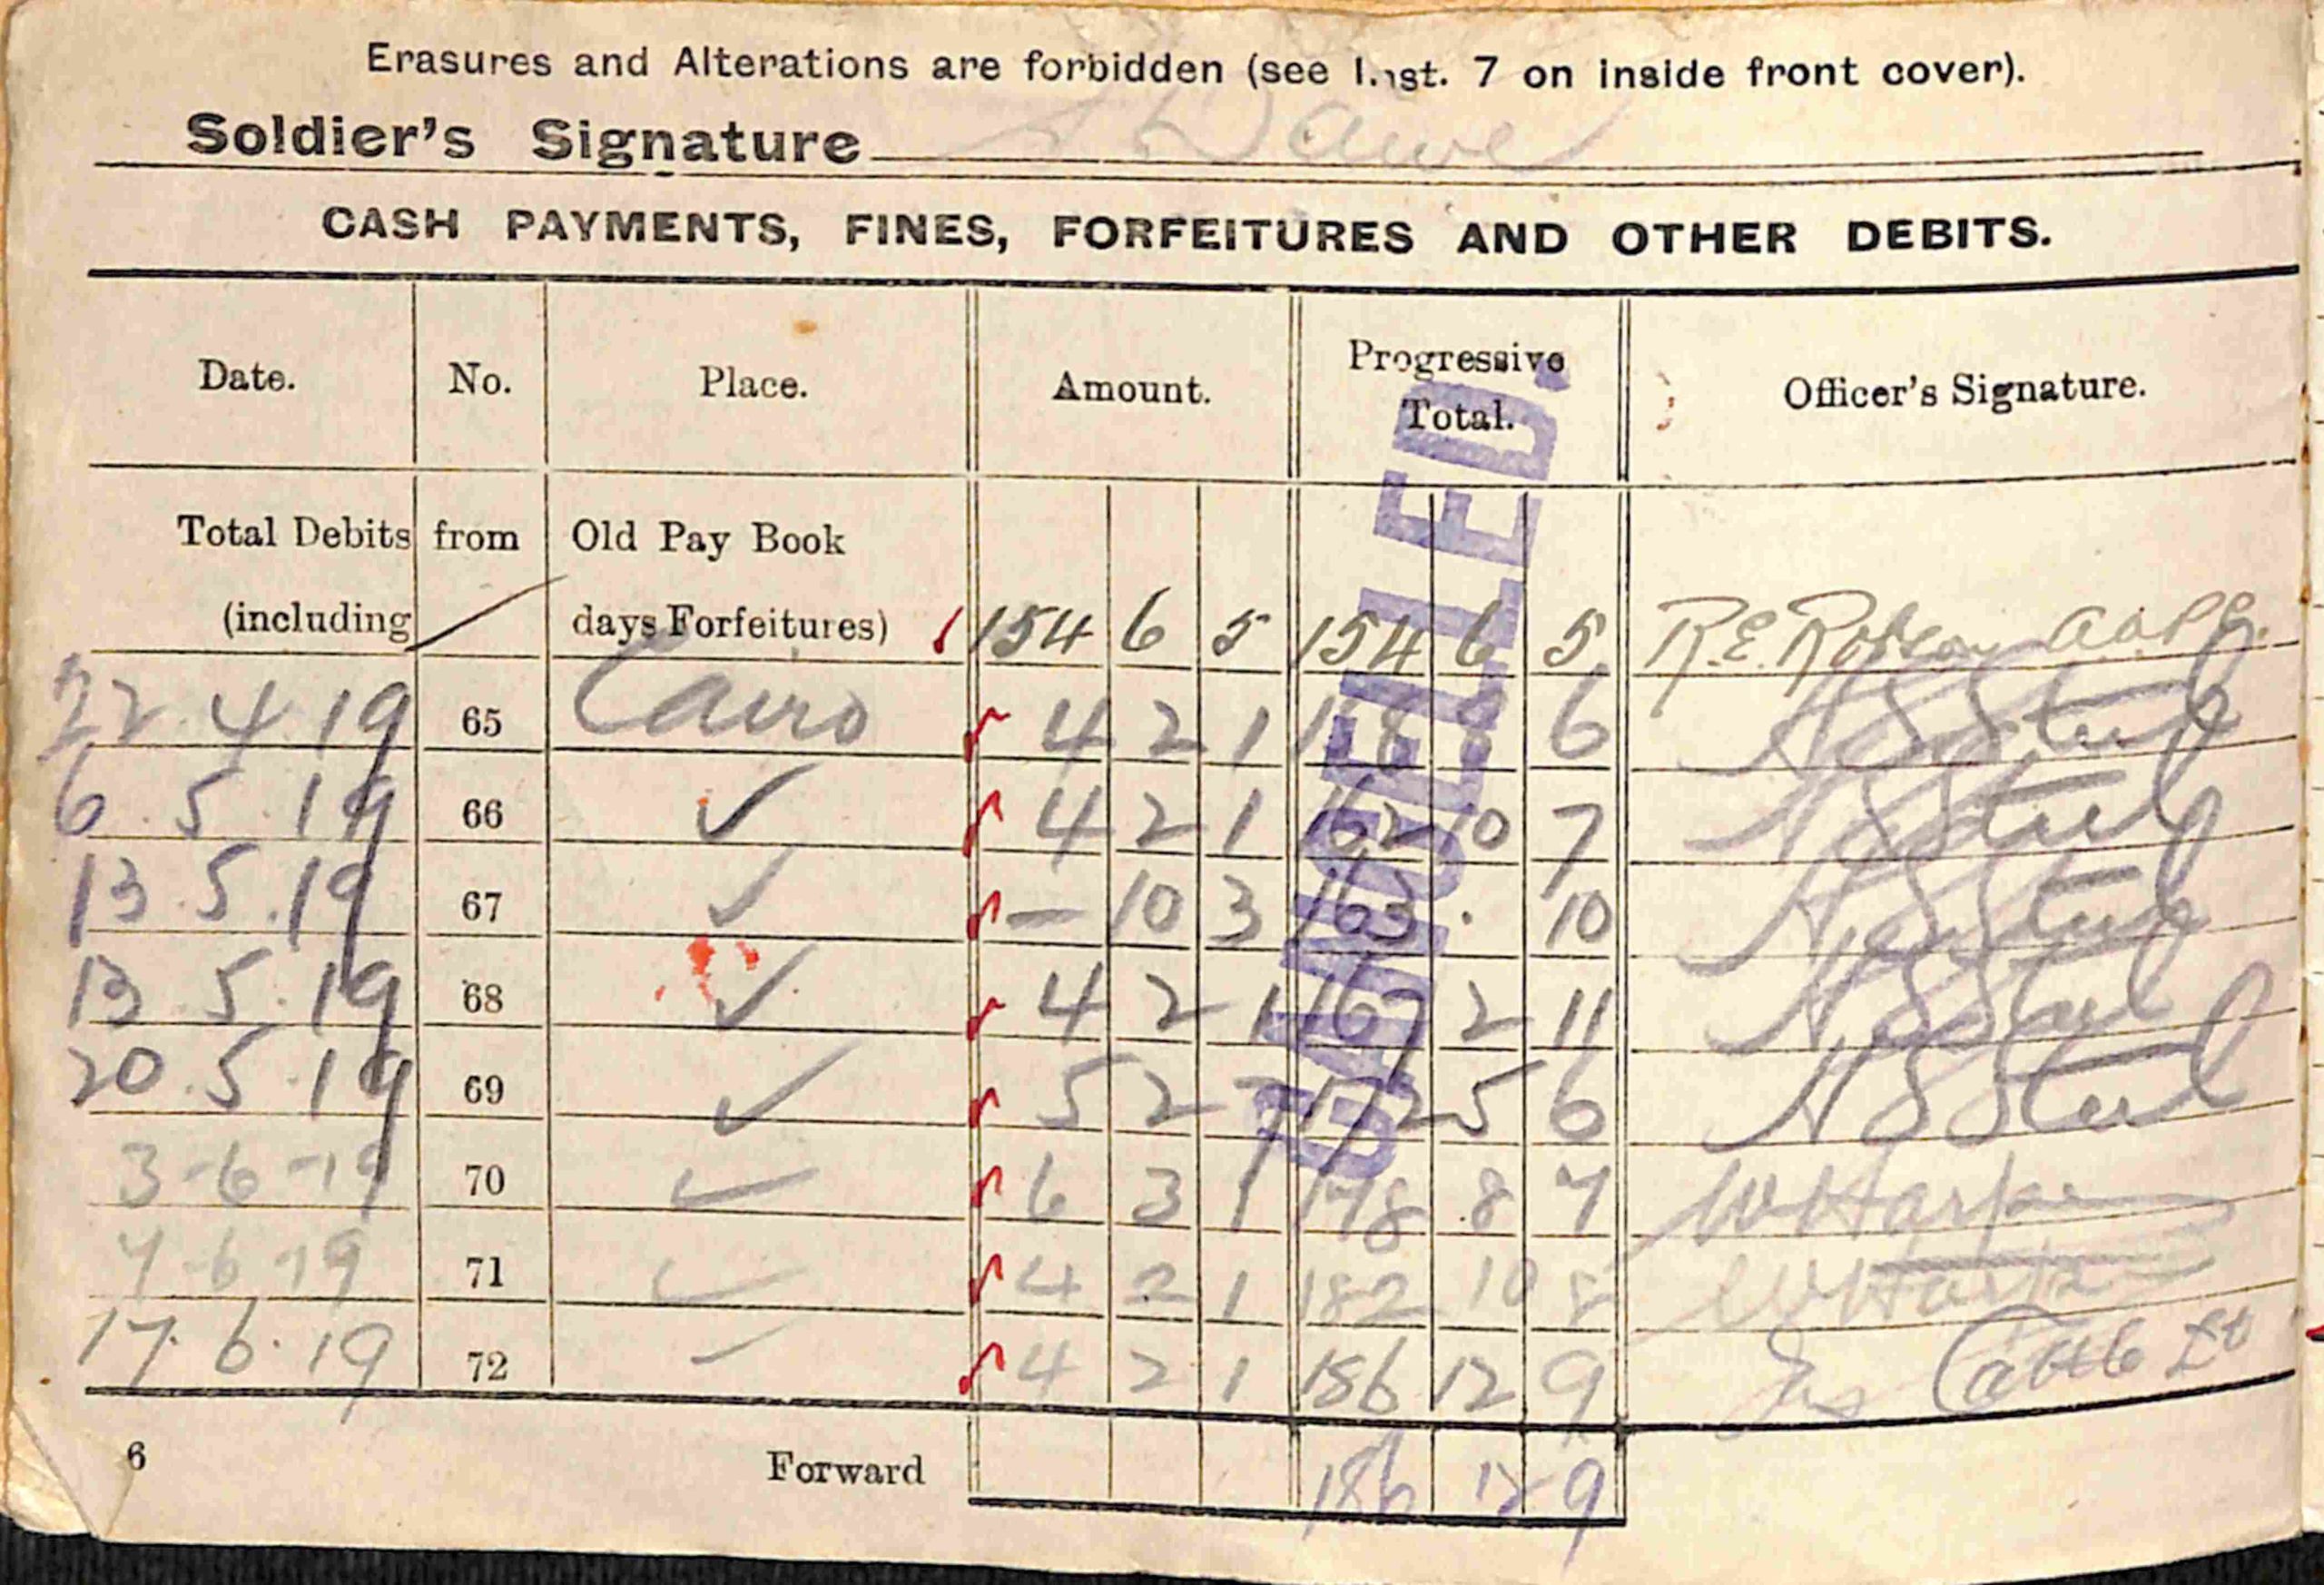 Erasures and Alterations are forbidden (see Inst. 7 on inside front cover).
Soldier's Signature Dawe
CASH PAYMENTS, FINES, FORFEITURES AND OTHER DEBITS.
Date. No. Place. Amount. Progressive Total. Officer's Signature.
Total Debits from Old Pay Book
(including / days Forfeitures) 154 6 5 154 6 5 R.E. Robson
22.4.19 65 Cairo 4 2 1 158 8 6
6.5.19 66 ✓ 4 2 1 162 10 7
13.5.19 67 ✓ – 10 3 163 . 10
13.5.19 68 ✓ 4 2 1 167 2 11
20.5.19 69 ✓ 5 2 7 172 5 6
3-6-19 70 ✓ 6 3 1 178 8 7 W Harper
7-6-19 71 ✓ 4 2 1 182 10 8 W Harper
17.6.19 72 ✓ 4 2 1 186 12 9 Lt
6 Forward 186 12 9
CANCELLED.